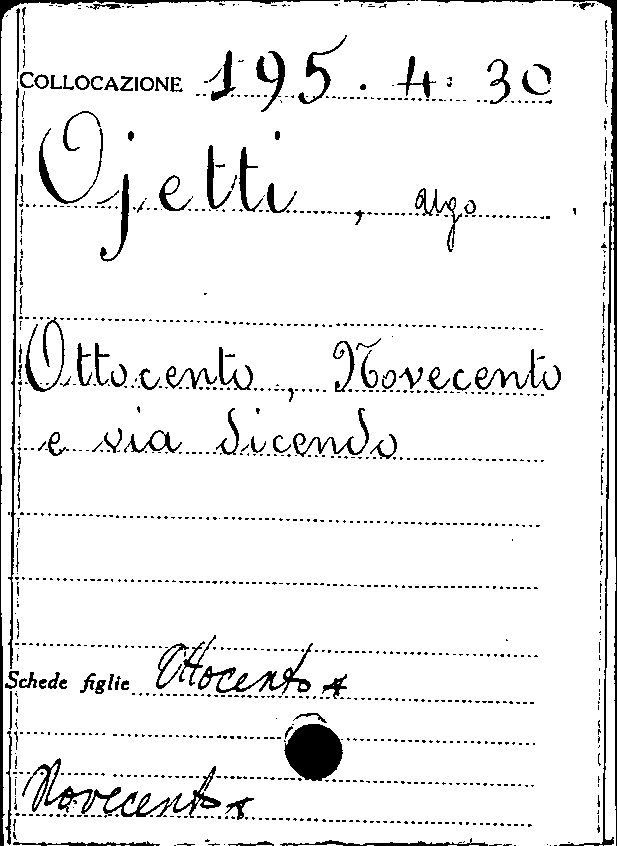 COLLOCAZIONE 195. 4: 30
Ojetti, Ugo
Ottocento, Novecento
e via dicendo
Schede figlie Ottocento
Novecento